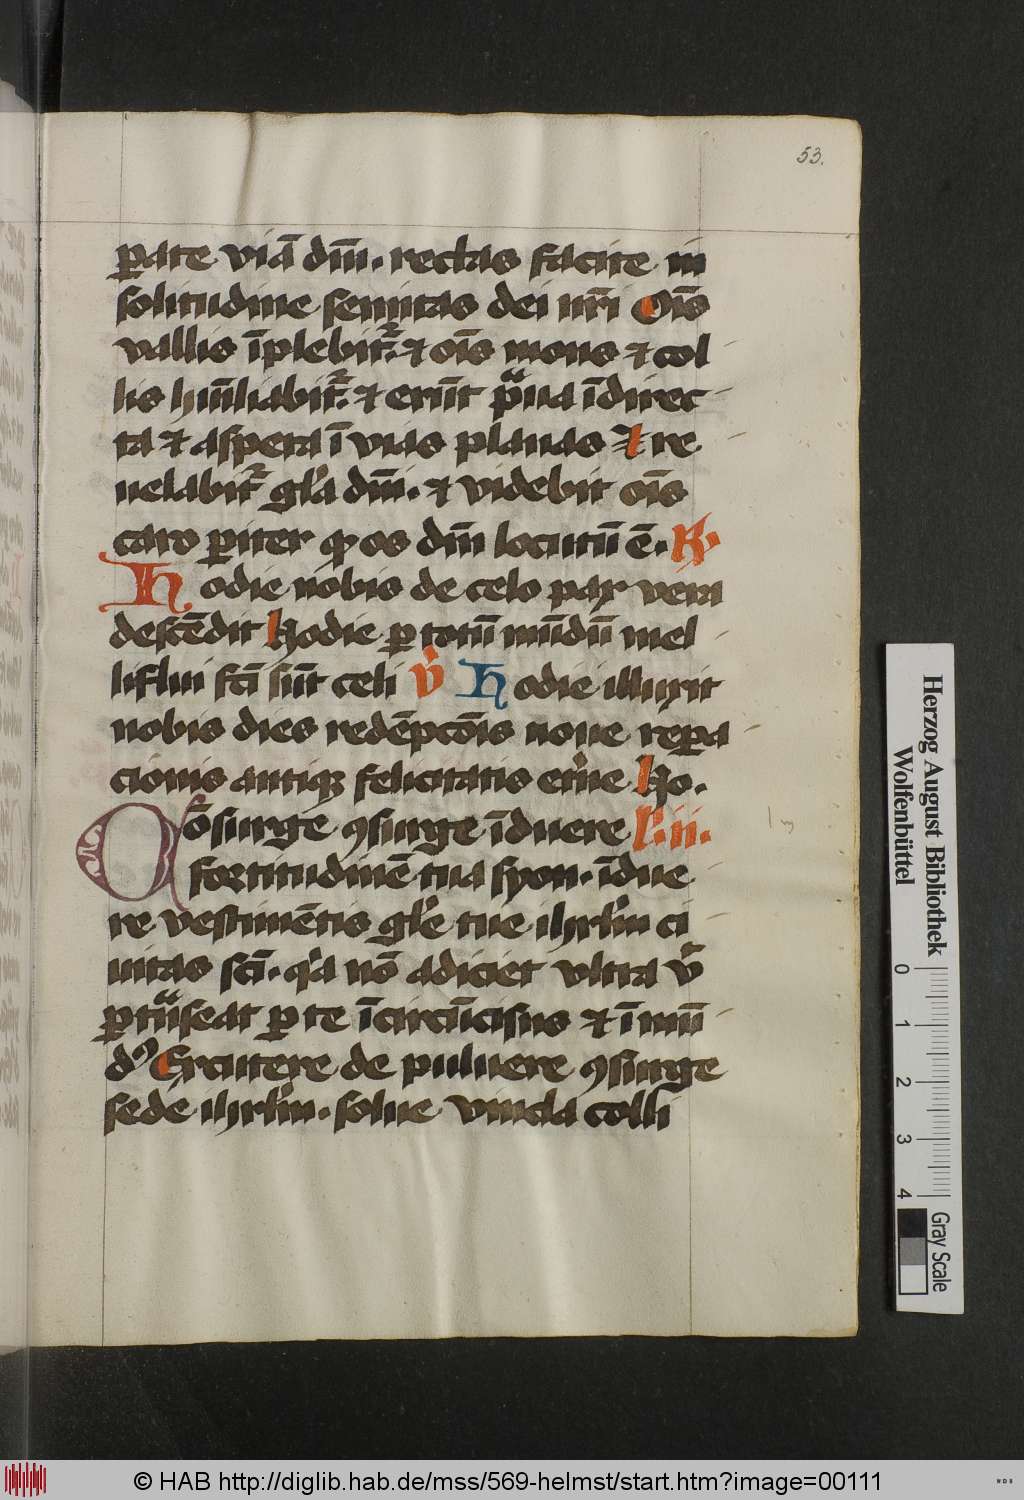 53.
ꝑate viā dn̄i. rectas facite in
solitudine semitas dei nr̄i Oīs
vallis īplebit᷑. ⁊ oīs mons ⁊ col
lis hūiliabit᷑. ⁊ erūt pᵃua ī direc
ta ⁊ aspera ī vias planas ⁊ re
uelabit᷑ gl'a dn̄i. ⁊ videbit oīs
caro ꝑiter ꝙ os dn̄i locutū ē. R.
Hodie nobis de celo pax vera
descēdit Hodie ꝑ totū mūdū mel
liflui fc̄i sūt celi v̾ Hodie illuxit
nobis dies redēpcōis noue reꝑa
cionis antiqꝫ felicitatis et'ne Ho.
Cōsurge ꝯsurge īduere l'. ii.
fortitudinē tua syon. īdue
re vestimētis gl'e tue ihrl'm ci
uitas sc̄i. q'a nō adiciet vltra vt᷑
ꝑtᵃnseat ꝑ te īcircūcisus ⁊ īmū
dꝰ Excutere de puluere ꝯsurge
sede ihrl'm. solue vincla colli
Herzog August Bibliothek
Wolfenbüttel
0 1 2 3 4
Gray Scale
© HAB http://diglib.hab.de/mss/569-helmst/start.htm?image=00111